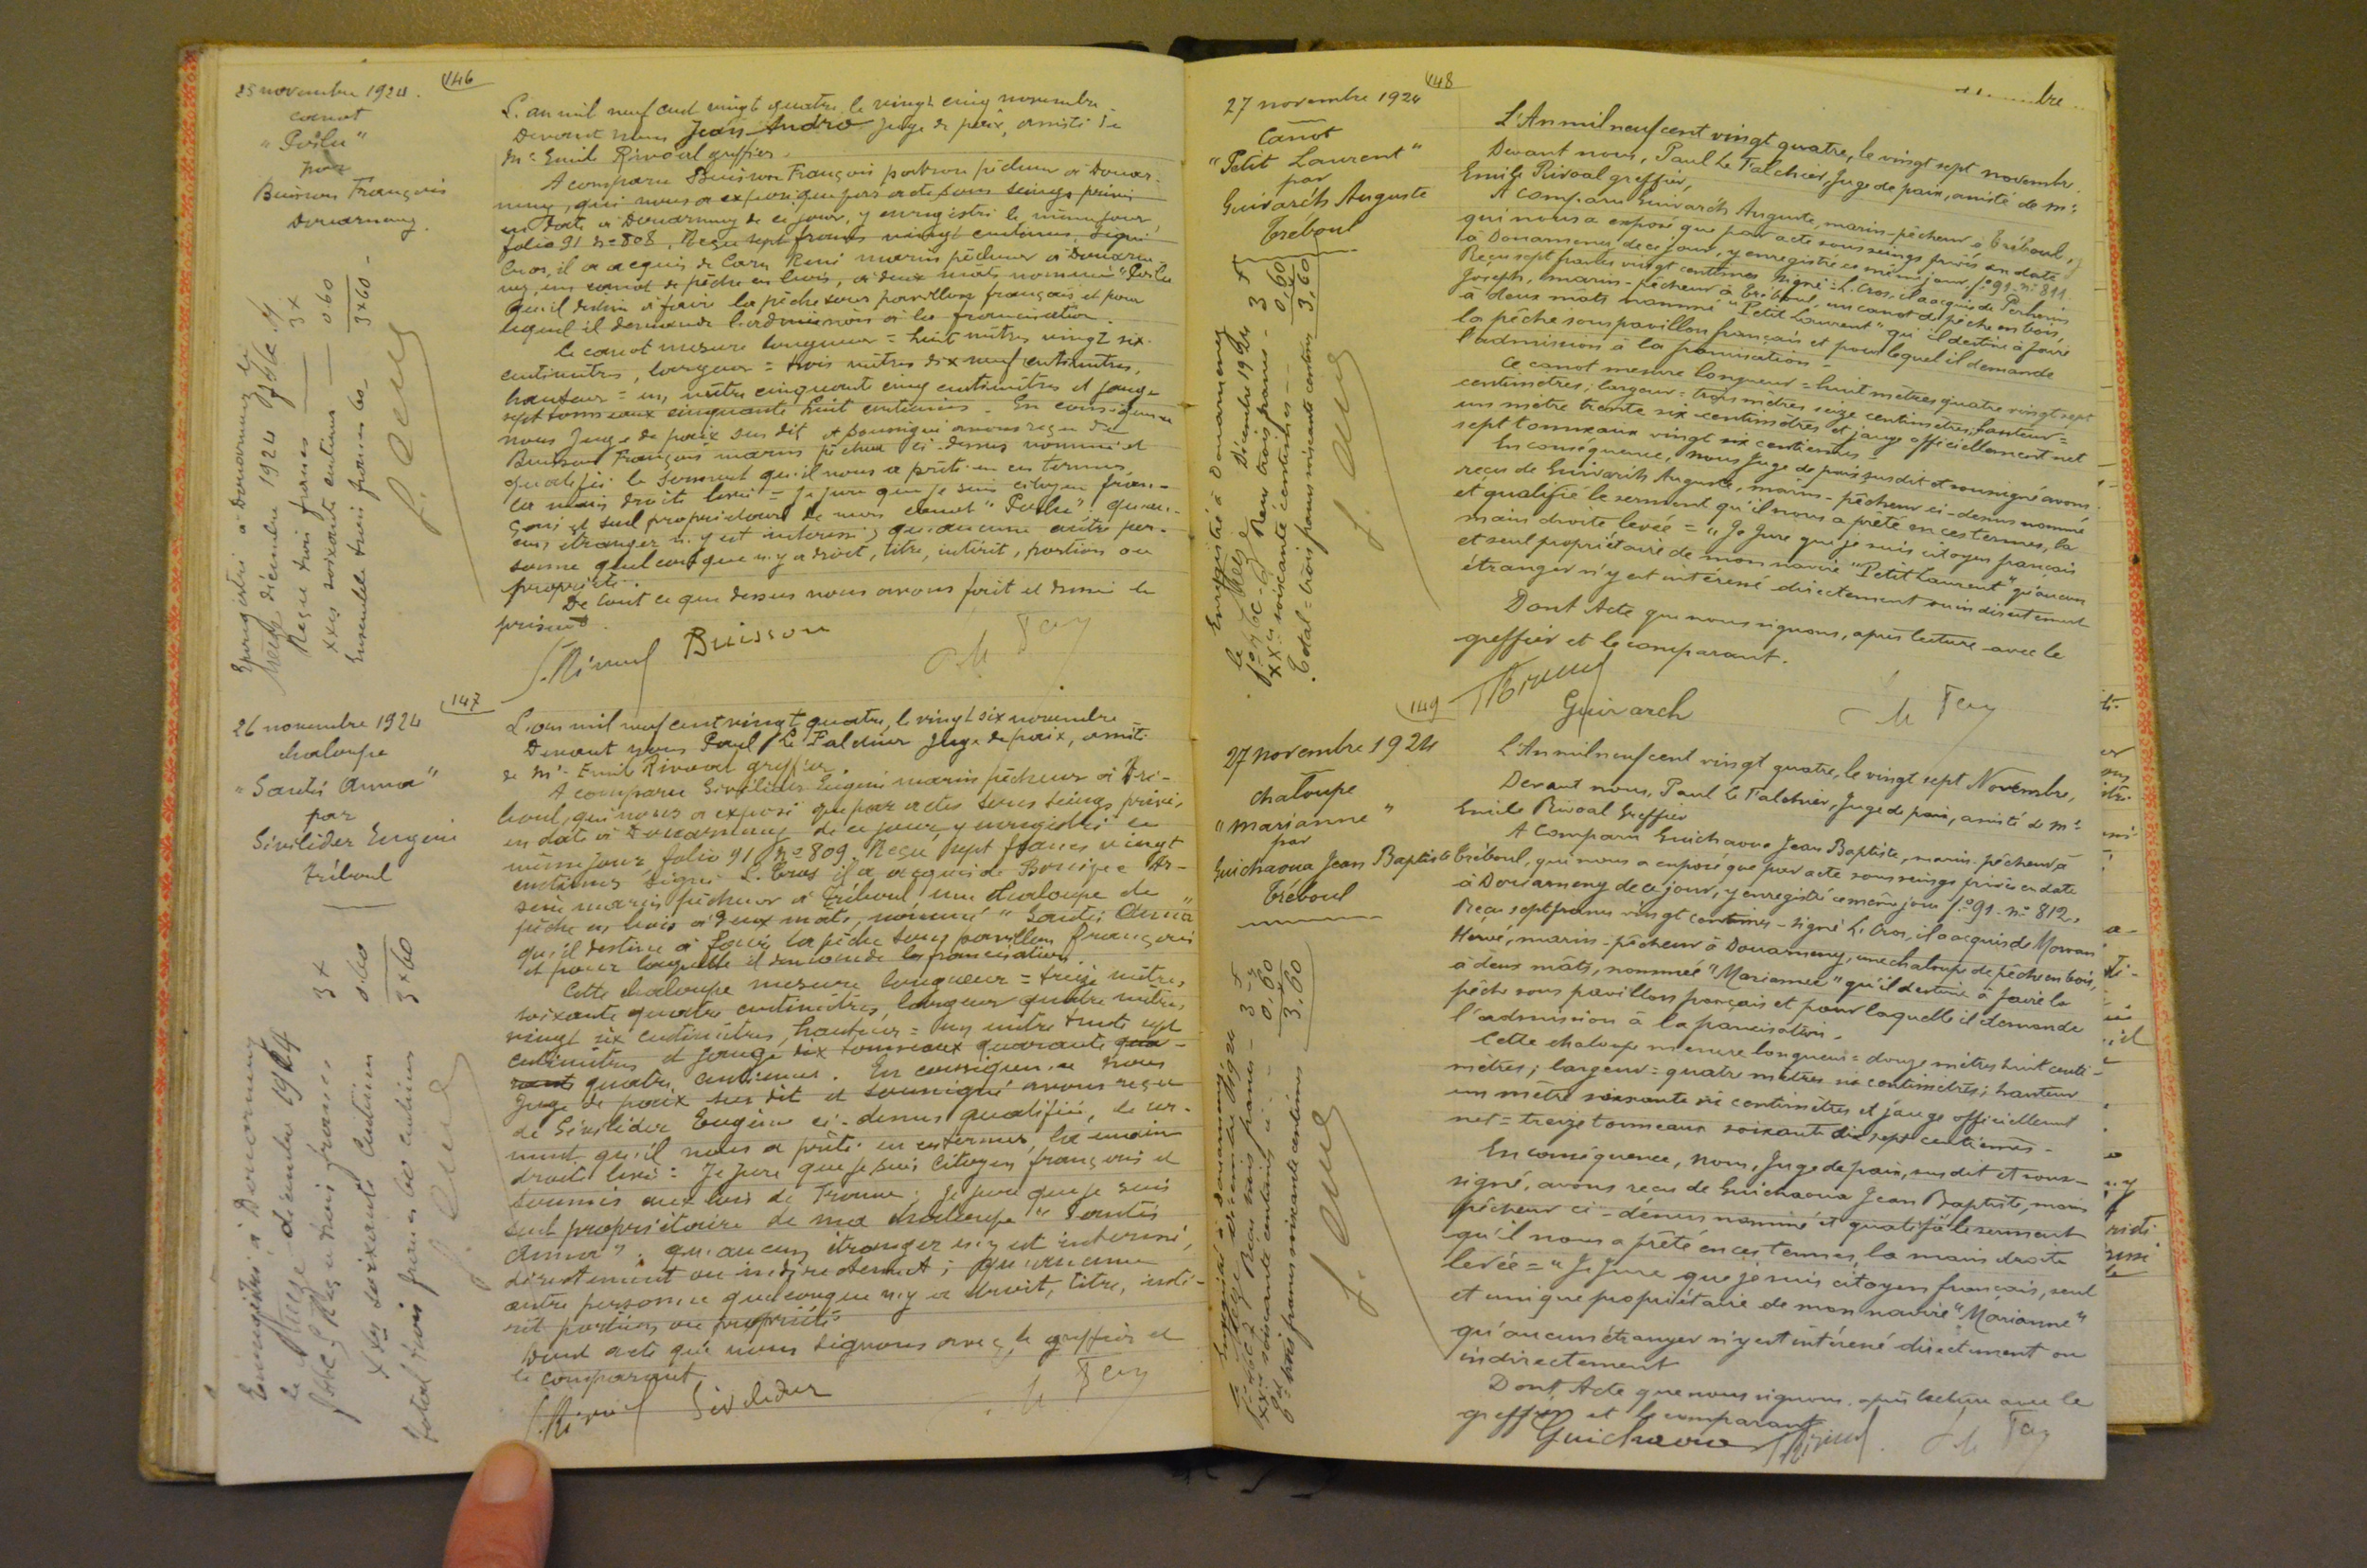 146
25 novembre 1924.
canot
"Poilu"
par
Buisson François
Douarnenez.
L'an mil neuf cent vingt quatre le vingt cinq novembre
Devant nous Jean André Juge de paix, assisté de
Me Emile Rivoal greffier.
A comparu Buisson François patron pêcheur à Douar-
nenez, qui nous a exposé que par acte sous seings privés
en date à Douarnenez de ce jour, y enregistré le même jour
folio 91 No 808, Reçu sept francs vingt centimes, signé
L. Cros, il a acquis de Cary René marin pêcheur à Douarne-
nez, un canot de pêche en bois, à deux mats nommé "Poilu
qu'il destine à faire la pêche sous pavillon français et pour
lequel il demande l'admission à la francisation.
Le canot mesure longueur = huit mètres vingt six
centimètres, largeur = trois mètres dix neuf centimètres,
hauteur = un mètre cinquante cinq centimètres et jauge
sept tonneaux cinquante huit centièmes. En conséquence
nous Juge de paix sus dit et soussigné avons reçu de
Buisson François marin pêcheur ci-dessus nommé et
qualifié le serment qu'il nous a prêté en ces termes,
la main droite levée = Je jure que je suis citoyen fran-
çais et seul propriétaire de mon canot "Poilu", qu'au-
cun étranger n'y est intéressé, qu'aucune autre per-
sonne quelconque n'y a droit, titre, intérêt, portion ou
propriété.
De tout ce que dessus nous avons fait et dressé le
présent.
E. Rivoal Buisson
Enregistré à Douarnenez le
treize décembre 1924
Reçu trois francs — 3 f
xxes soixante centimes — 0.60
Ensemble trois francs 60 3f60
147
26 novembre 1924
chaloupe
"Santés Anna"
par
Sévilider Eugène
Tréboul
L'an mil neuf cent vingt quatre, le vingt six novembre
Devant nous Paul Le Falchier Juge de paix, assisté
de Me Emile Rivoal greffier.
A comparu Sévilider Eugène marin pêcheur à Tré-
boul, qui nous a exposé que par actes sous seings privés,
en date à Douarnenez de ce jour, y enregistré le
même jour folio 91 No 809. Reçu sept francs vingt
centimes signé L. Cros il a acquis de
marin pêcheur à Tréboul, une chaloupe de
pêche en bois à deux mats, nommée "Santés Anna"
qu'il destine à faire la pêche sous pavillon français
et pour laquelle il demande la francisation.
Cette chaloupe mesure longueur = treize mètres
soixante quatre centimètres, largeur quatre mètres
vingt six centimètres, hauteur = un mètre trente sept
centimètres et jauge dix tonneaux quarante qua-
rante quatre centièmes. En conséquence nous
Juge de paix sus dit et soussigné avons reçu
de Sévilider Eugène ci-dessus qualifié, le ser-
ment qu'il nous a prêté en ces termes, la main
droite levée : Je jure que je suis citoyen français et
soumis aux lois de France ; Je jure que je suis
seul propriétaire de ma chaloupe "Santés
Anna", qu'aucun étranger n'y est intéressé,
directement ou indirectement ; qu'aucune
autre personne quelconque n'y a droit, titre, inté-
rêt portion ou propriété.
Dont acte que nous signons avec le greffier et
le comparant
E. Rivoal Sévilider
Enregistré à Douarnenez
le treize décembre 1924
Reçu trois francs 3 f
xxes soixante centimes 0.60
total trois francs 60 centimes 3f60
148
27 novembre 1924
Canot
"Petit Laurent"
par
Guivarch Auguste
Tréboul
L'An mil neuf cent vingt quatre, le vingt sept novembre.
Devant nous, Paul Le Falchier, Juge de paix, assisté de Me
Emile Rivoal greffier,
A comparu Guivarch Auguste, marin-pêcheur à Tréboul,
qui nous a exposé que par acte sous seings privés en date
à Douarnenez de ce jour, y enregistré ce même jour, fo 91 - no 811.
Reçu sept francs vingt centimes signé : L. Cros, il a acquis de Perherin
Joseph, marin-pêcheur à Tréboul, un canot de pêche en bois,
à deux mâts nommé "Petit Laurent" qu'il destine à faire
la pêche sous pavillon français et pour lequel il demande
l'admission à la francisation -
Ce canot mesure longueur = huit mètres quatre vingt sept
centimètres ; largeur = trois mètres seize centimètres, hauteur =
un mètre trente six centimètres et jauge officiellement net
sept tonneaux vingt six centièmes -
En conséquence, nous Juge de paix susdit et soussigné avons
reçu de Guivarch Auguste, marin-pêcheur ci-dessus nommé
et qualifié le serment qu'il nous a prêté en ces termes, la
main droite levée = "Je Jure que je suis citoyen français
et seul propriétaire de mon navire "Petit Laurent" qu'aucun
étranger n'y est intéressé directement ou indirectement
Dont Acte que nous signons, après lecture avec le
greffier et le comparant.
E. Rivoal
Guivarch
Enregistré à Douarnenez
le treize Décembre 1924
Reçu trois francs - 3 F
xxes soixante centimes - 0,60
Total = trois francs soixante centimes 3,60
149
27 novembre 1924
chaloupe
"Marianne"
par
Guichaoua Jean Baptiste
Tréboul
L'An mil neuf cent vingt quatre, le vingt sept Novembre,
Devant nous, Paul Le Falchier, Juge de paix, assisté de Me
Emile Rivoal Greffier
A Comparu Guichaoua Jean Baptiste, marin-pêcheur à
Tréboul, qui nous a exposé que par acte sous seings privés en date
à Douarnenez de ce jour, y enregistré ce même jour fo 91 - no 812.
Reçu sept francs vingt centimes - signé L. Cros, il a acquis de Morvan
Hervé, marin-pêcheur à Douarnenez, une chaloupe de pêche en bois,
à deux mâts, nommée "Marianne" qu'il destine à faire la
pêche sous pavillon français et pour laquelle il demande
l'admission à la francisation.
Cette chaloupe mesure longueur = douze mètres huit centi-
mètres ; largeur = quatre mètres six centimètres ; hauteur
un mètre soixante six centimètres et jauge officiellement
net = treize tonneaux soixante dix sept centièmes -
En conséquence, nous, Juge de paix, sus dit et sous-
signé, avons reçu de Guichaoua Jean Baptiste, marin
pêcheur ci-dessus nommé et qualifié le serment
qu'il nous a prêté en ces termes, la main droite
levée = "Je Jure que je suis citoyen français, seul
et unique propriétaire de mon navire "Marianne"
qu'aucun étranger n'y est intéressé directement ou
indirectement
Dont Acte que nous signons, après lecture avec le
greffier et le comparant
Guichaoua E. Rivoal
Enregistré à Douarnenez
le treize décembre 1924
Reçu trois francs - 3 F
xxes soixante centimes - 0,60
trois francs soixante centimes 3,60